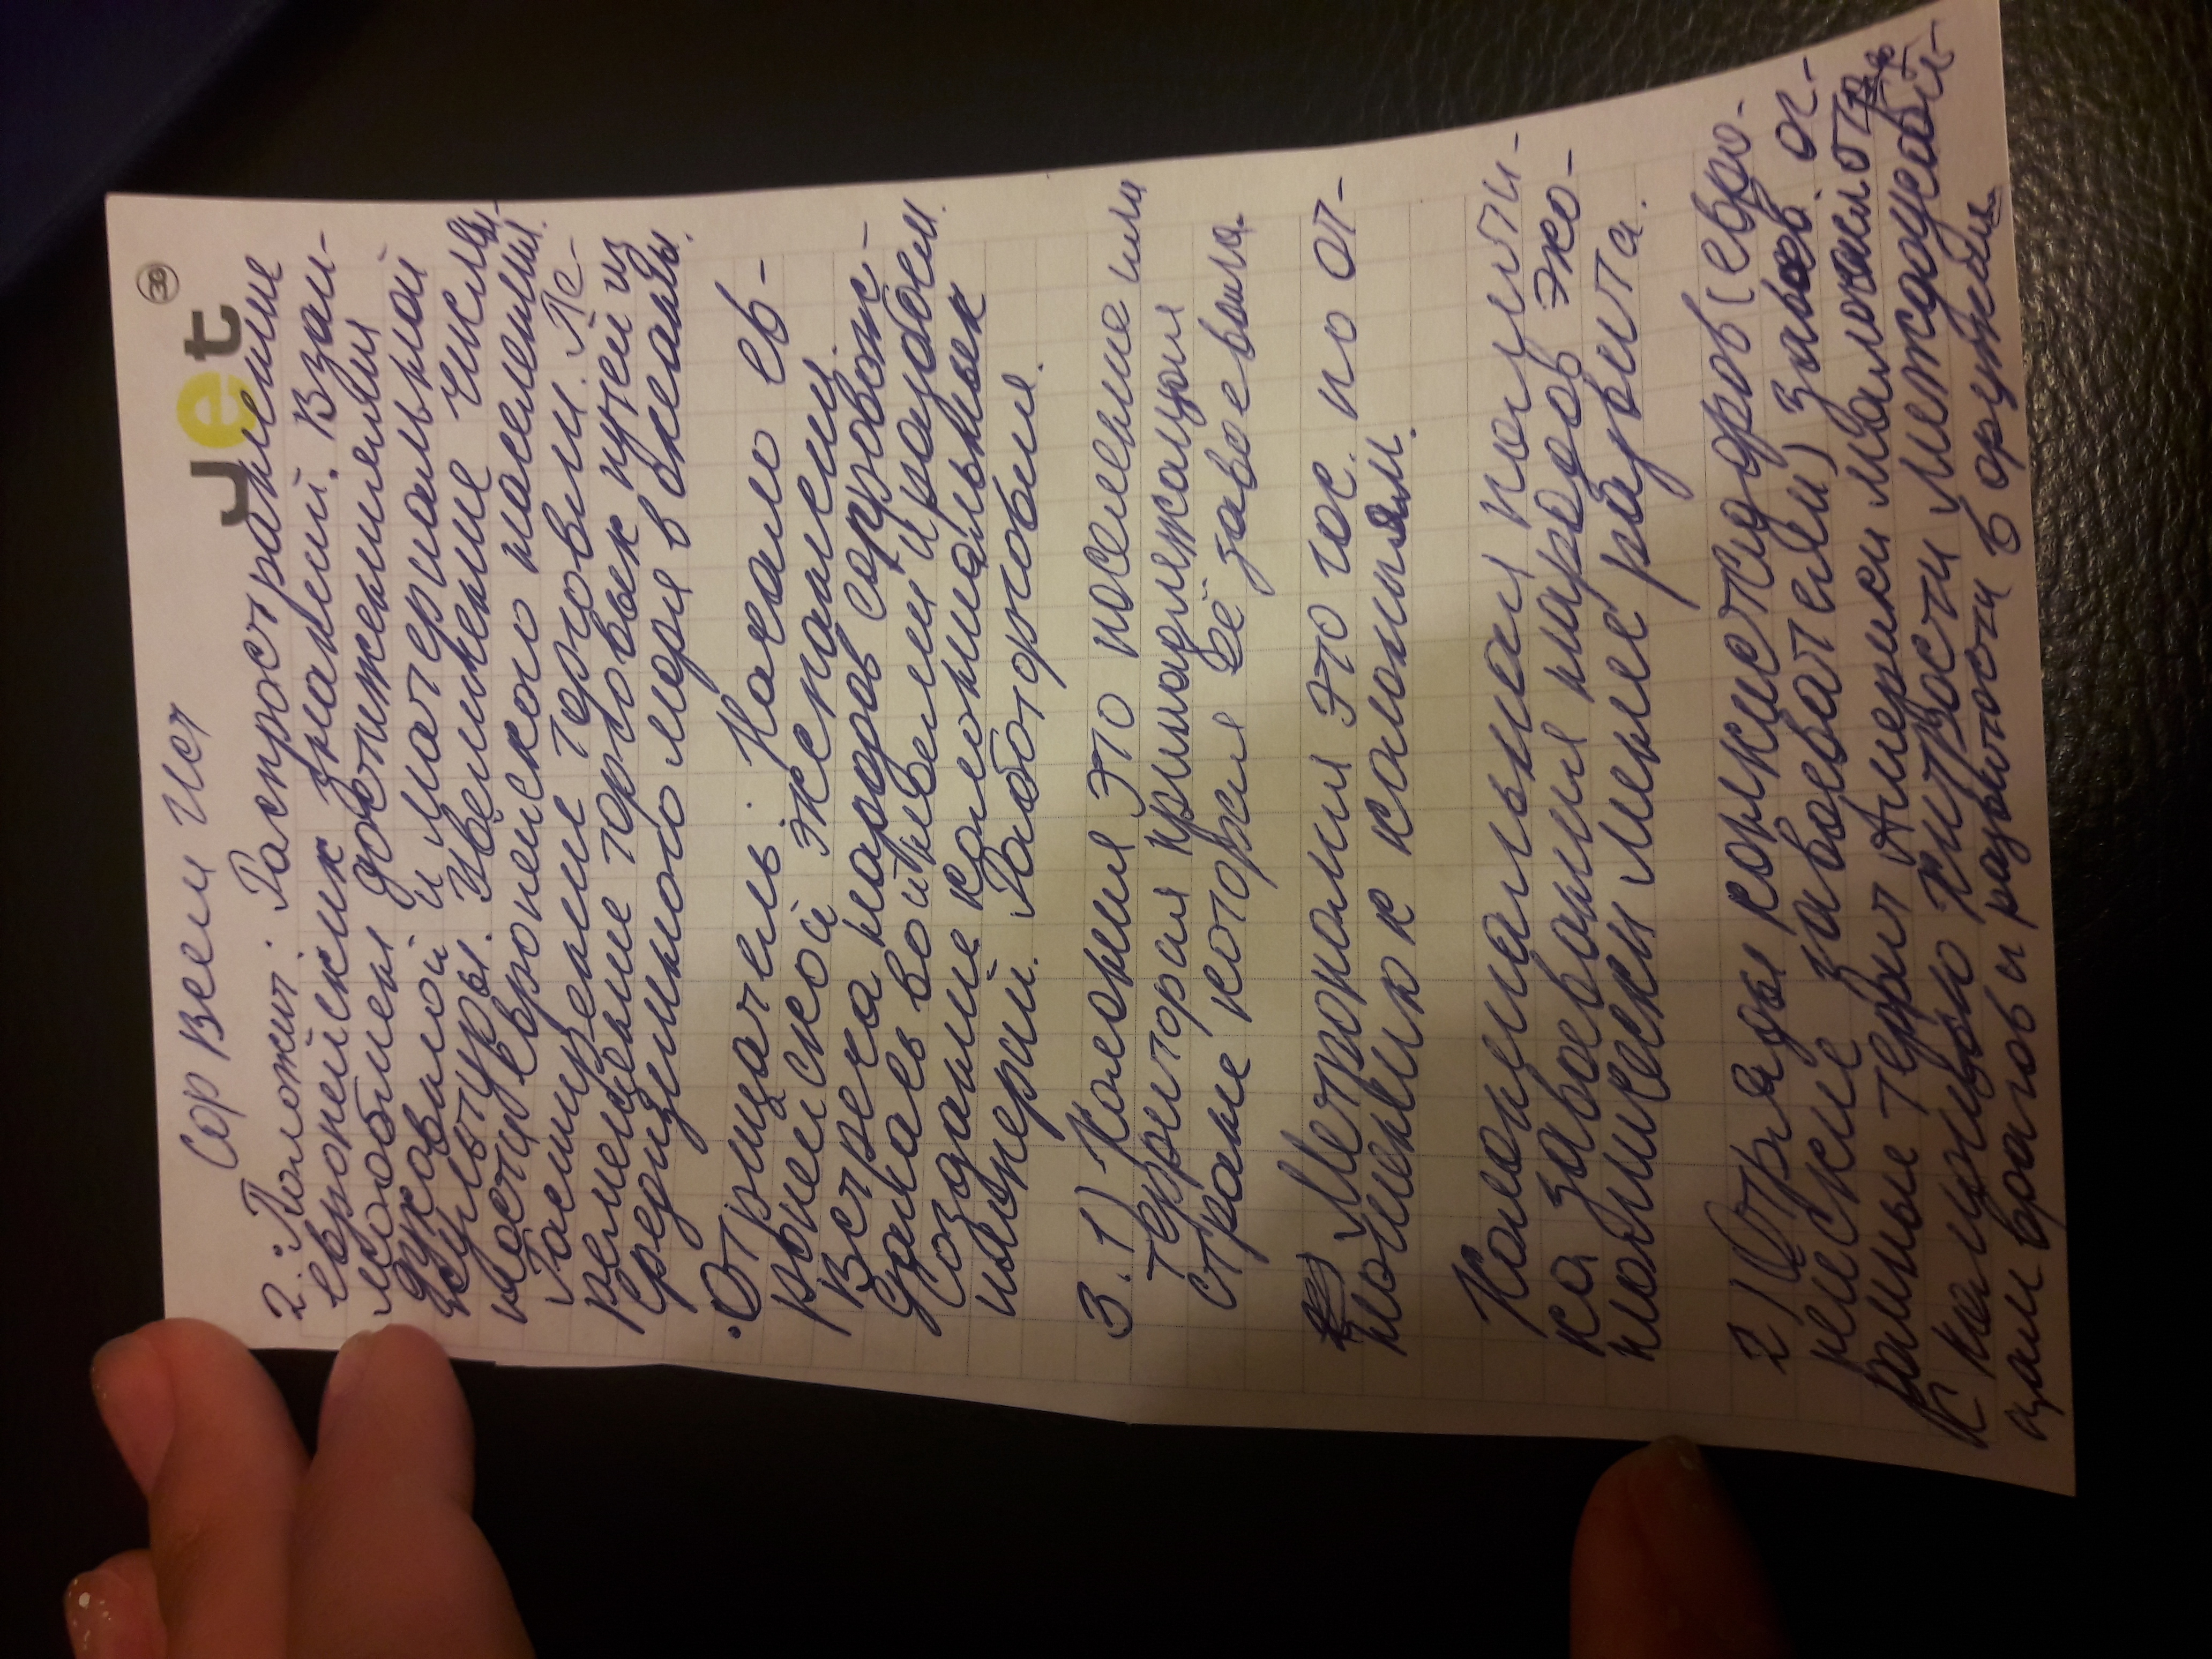 Jet
30
Сор Всем Ист
2. • Положит: Распространение
европейских знаний. Взаи-
мообмен достижениями
духовной и материальной
культуры. Увеличение числен-
ности европейского населения.
Расширение торговли. Пе-
ремещение торговых путей из
Средиземного моря в океаны.
• Отрицатель: Начало ев-
ропейской экспансии.
Встреча народов сопровож-
далась войнами и разбоем.
Создание колониальных
империй. Работорговля.
3. 1) Колония это поселение или
территория принадлежащая
стране которая её завоевала.
Метрополия это гос. по от-
ношению к колониям.
Колониальная полити-
ка завоевание народов эко-
номически менее развита.
2) Отряды конкистадоров (евро-
пейские завоеватели) завоев. ог-
ромные террит Америки малочисл.
К концу хитрости междоусоби-
цам врагов и развитости в оружии